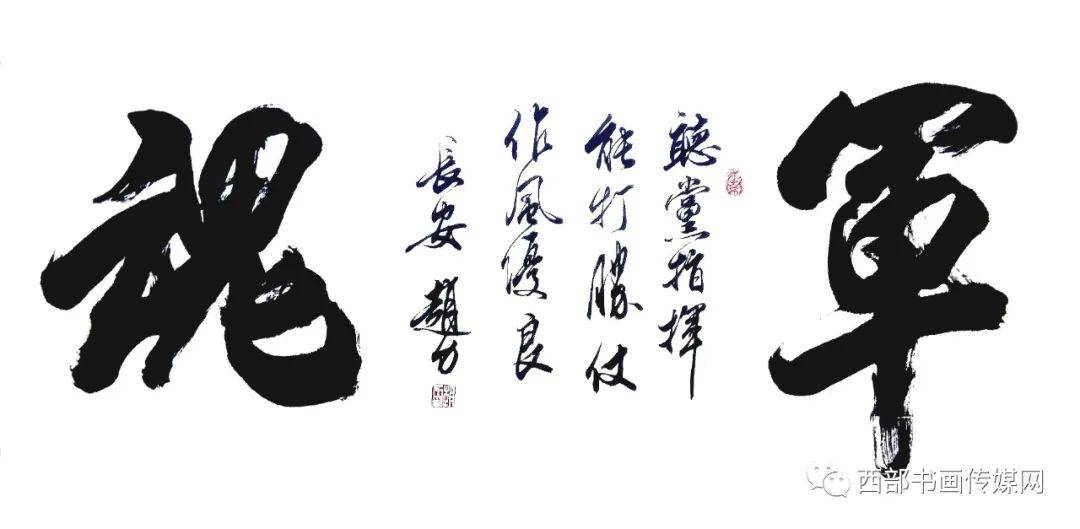 軍
聽黨指揮
能打勝仗
作風優良
長安 趙力
魂
西部书画传媒网